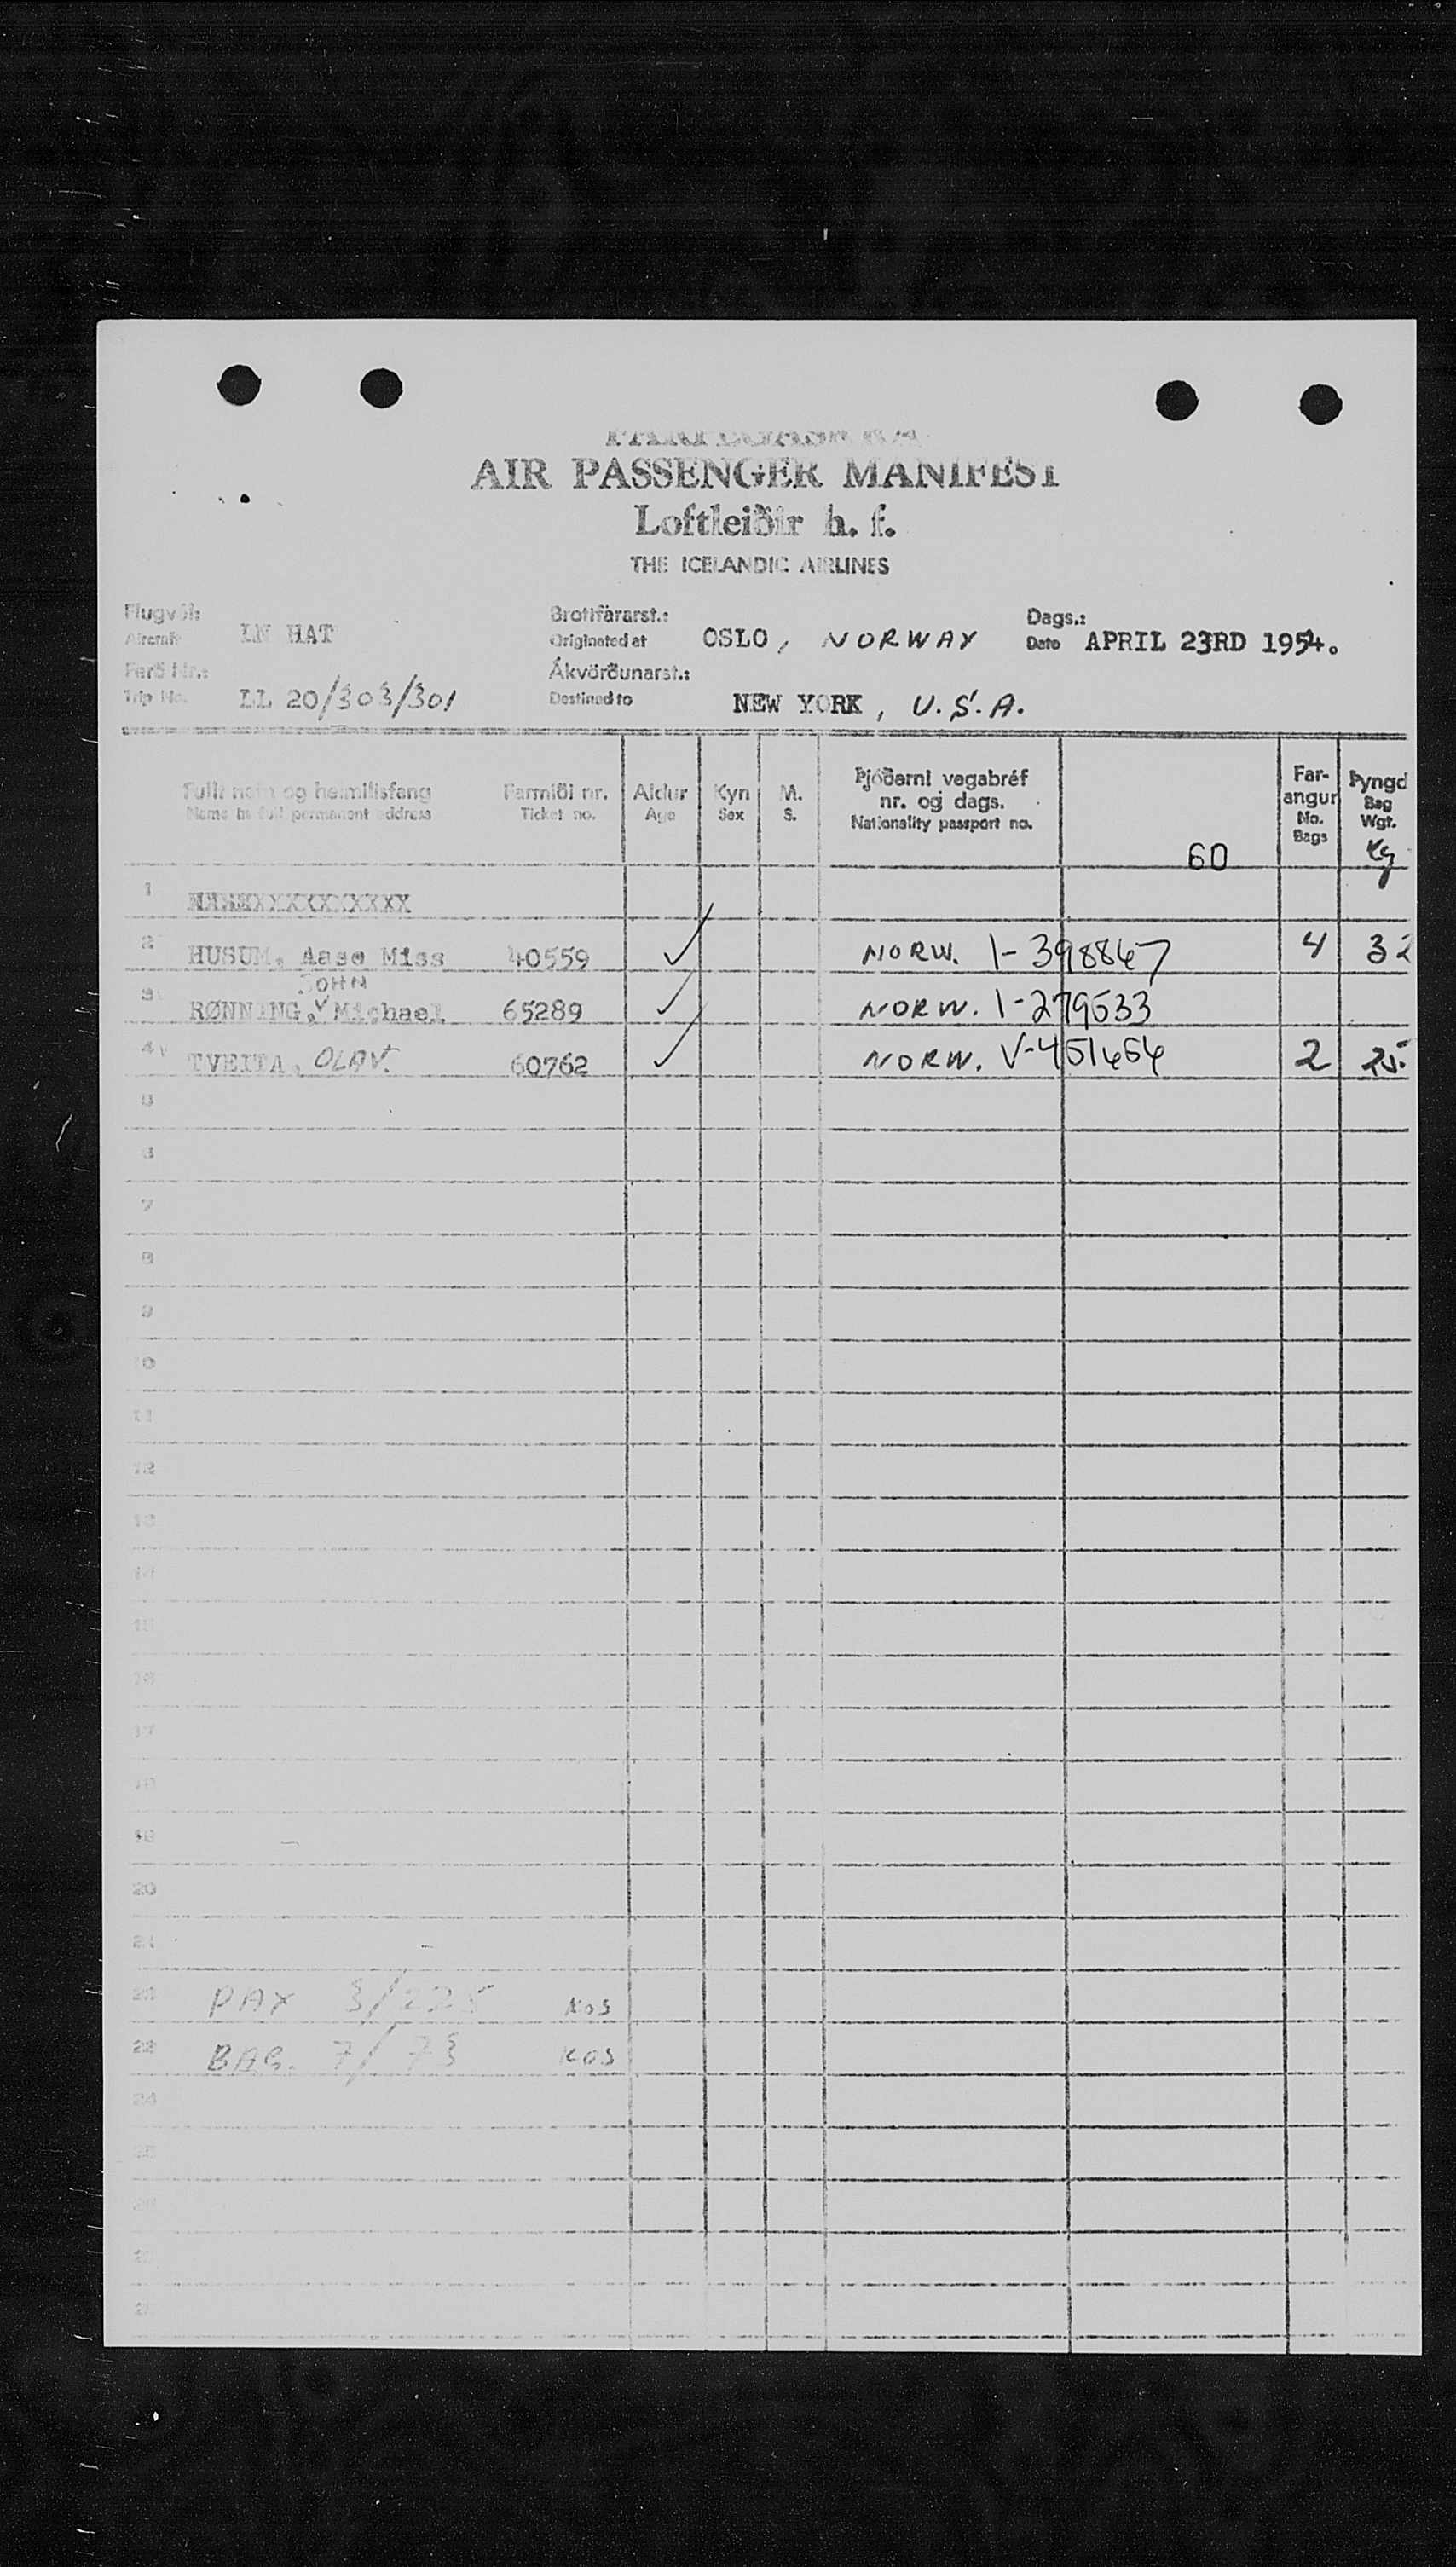 AIR PASSENGER MANIFEST
Loftleiðir h. f.
THE ICELANDIC AIRLINES
Flugvél: Brottfararst.: Dags.:
Aircraft LN HAT Originated at OSLO, NORWAY Date APRIL 23RD 1954.
Ferð Nr.: Ákvörðunarst.:
Trip No. LL 20/303/301 Destined to NEW YORK, U.S.A.
Fullt nafn og heimilisfang Farmiði nr. Aldur Kyn M. Þjóðerni vegabréf nr. og dags. Farangur Þyngd
Name in full permanent address Ticket no. Age Sex S. Nationality passport no. 60 No. Bags Bag Wgt. Kg
1
2 HUSUM, Aase Miss 40559 ✓ NORW. 1-398867 4 32
JOHN
3 RØNNING, Michael 65289 ✓ NORW. 1-279533
4 TVEITA, OLAV. 60762 ✓ NORW. V-451464 2 25.
5
6
7
8
9
10
11
12
13
14
15
16
17
18
19
20
21
22 PAX 3/225 KOS
23 BAG. 7/73 KOS
24
25
26
27
28